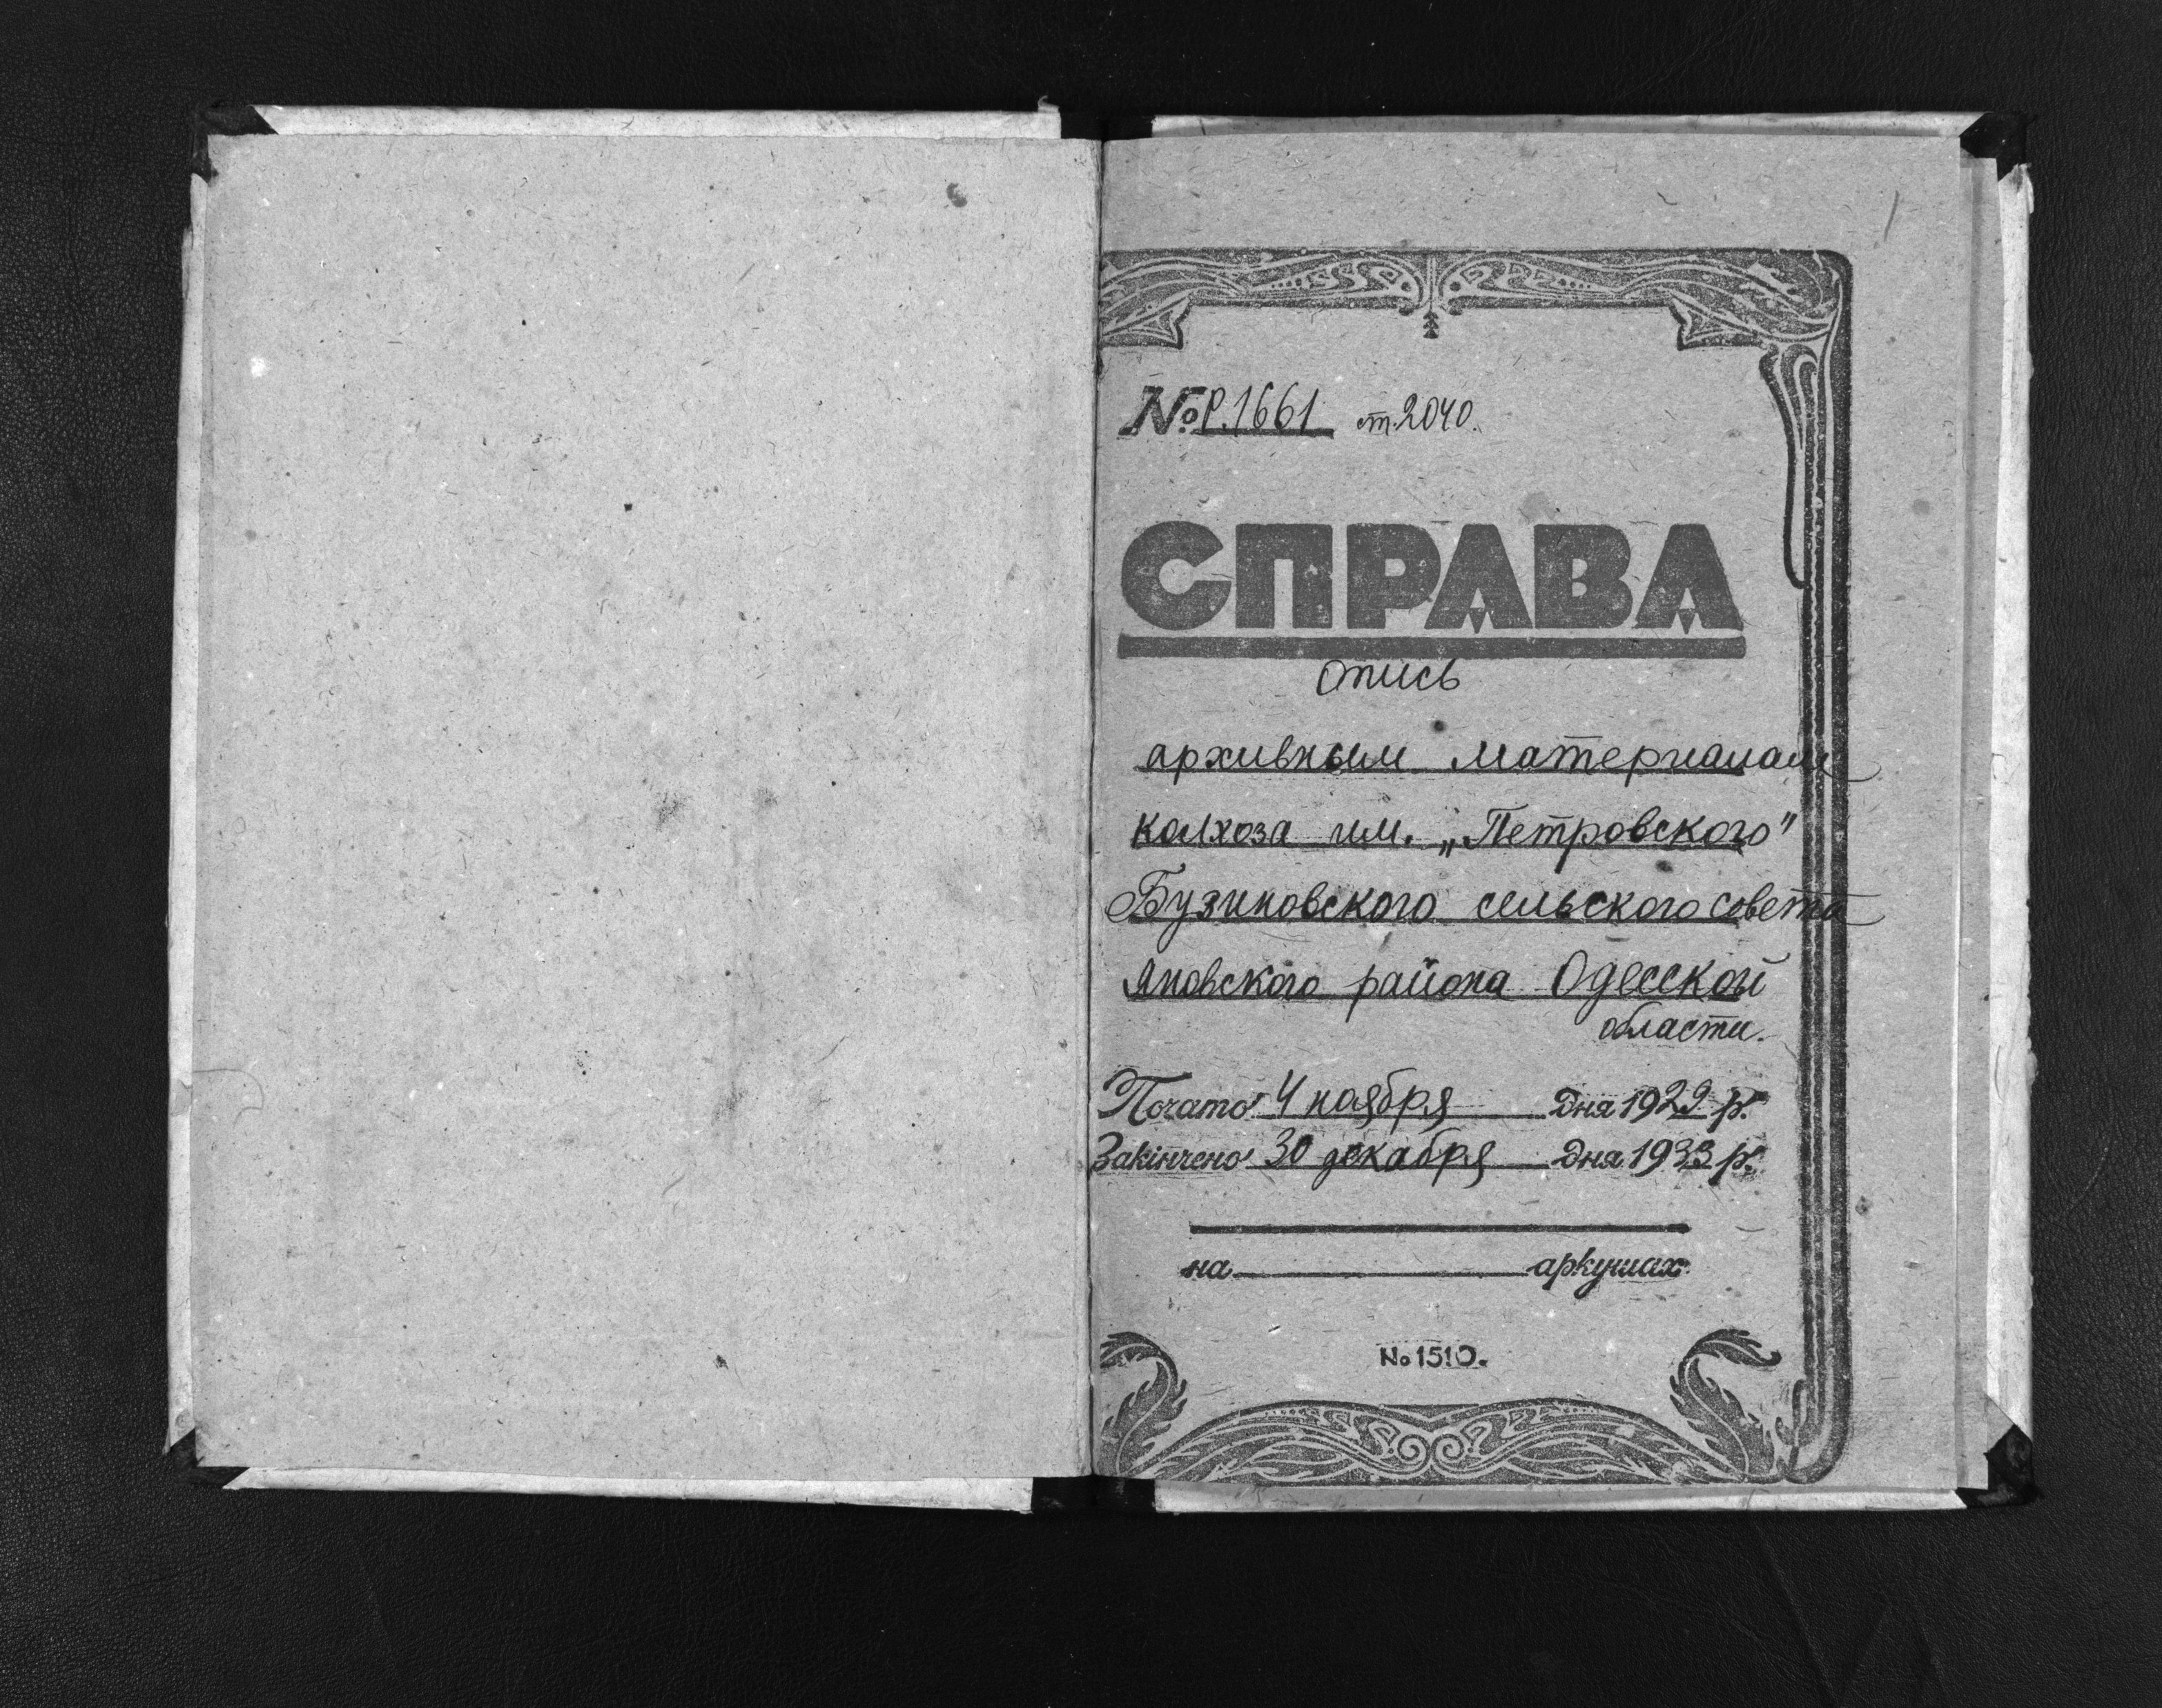 № Р.1661 ст.2040.
СПРАВА
Опись
архивным материалам
колхоза им. „Петровского"
Бузиновского сельского совета
Яновского района Одесской
области.
Почато 4 ноября дня 1929 р.
Закінчено 30 декабря дня 1933 р.
на аркушах
№ 1510.